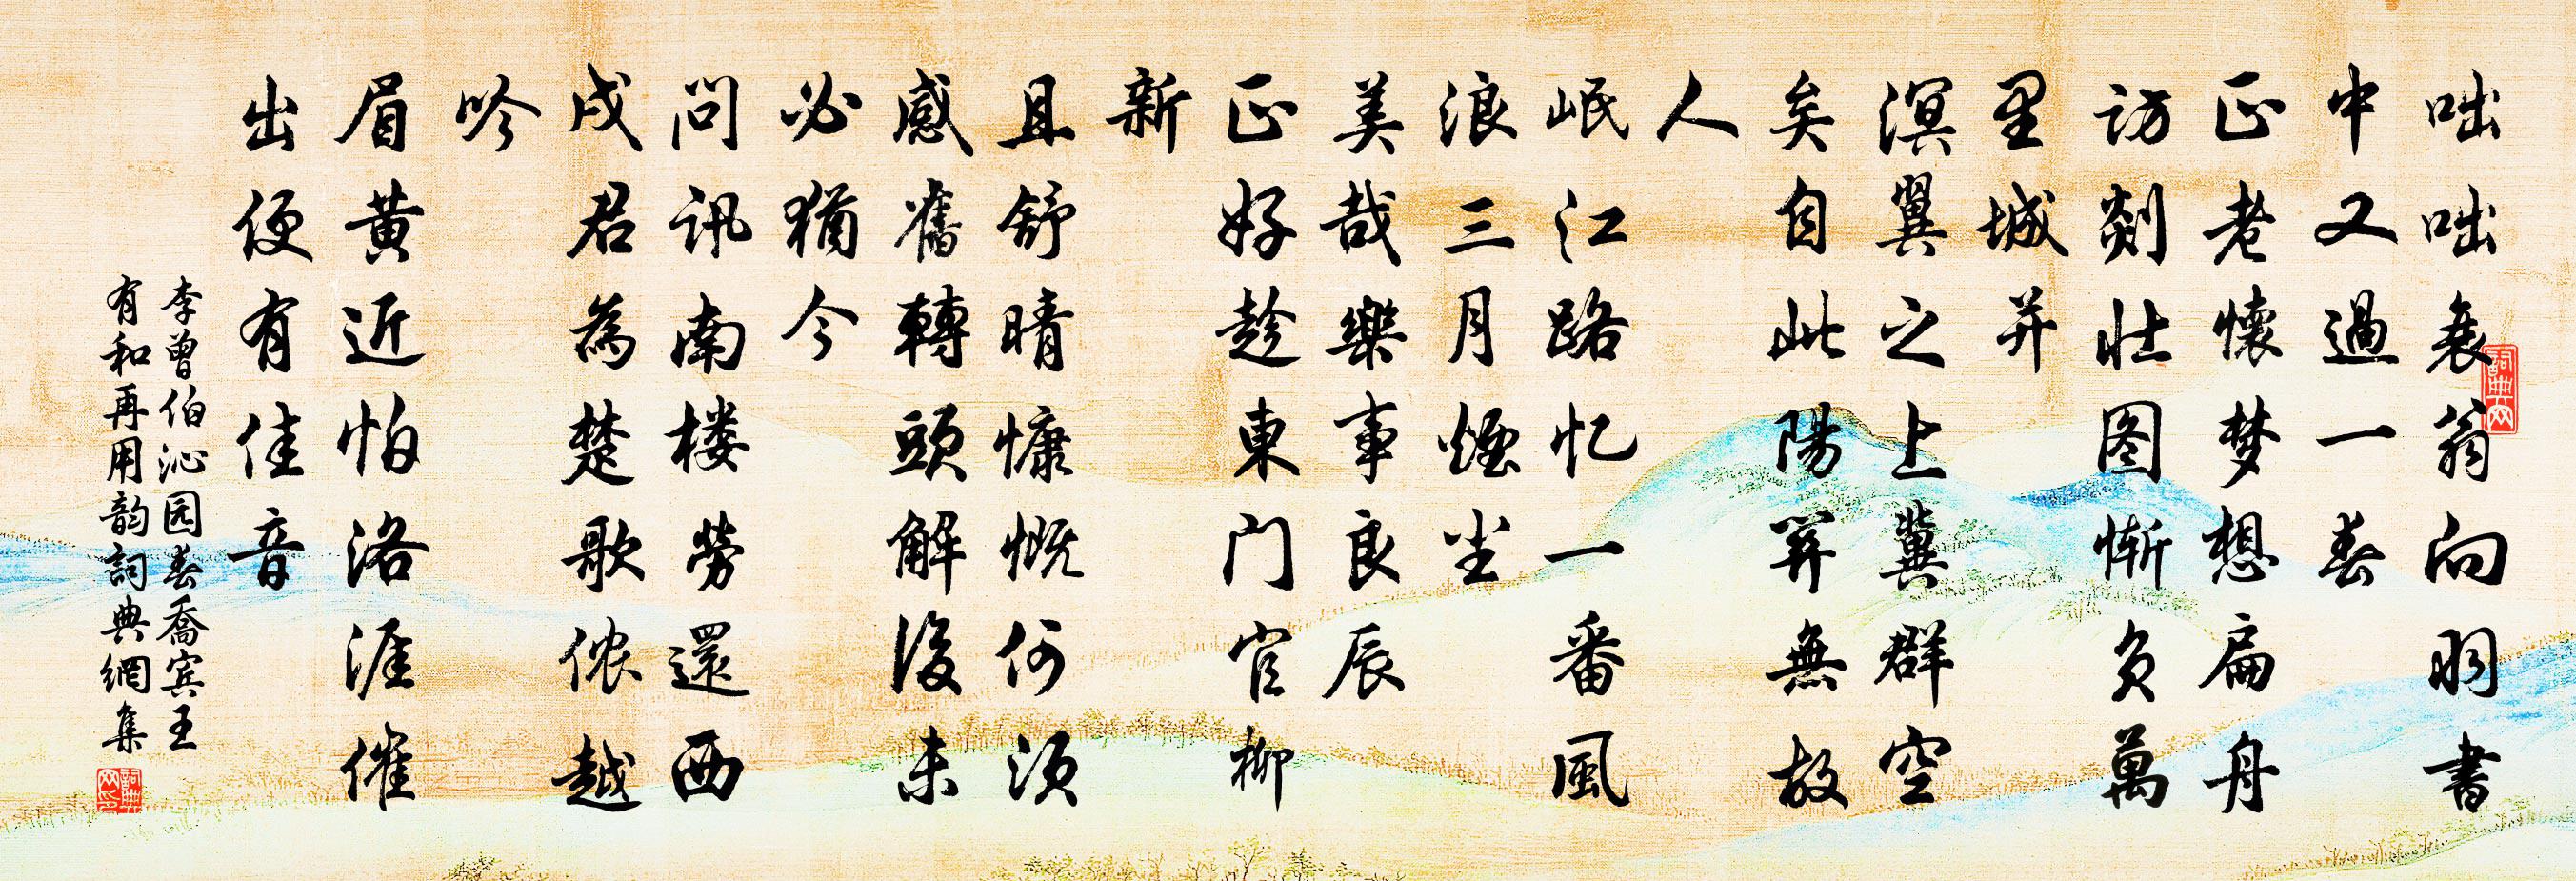 咄咄衰翁向羽書
中又過一春
正老懷梦想扁舟
訪剡壮图惭负萬
里城并
溟翼之上冀群空
矣自此陽關無故
人
岷江路忆一番風
浪三月煙尘
美哉樂事良辰
正好趁東门官柳
新
且舒晴慷慨何須
感舊轉頭解後未
必猶今
問訊南楼勞還西
戍君為楚歌侬越
吟
眉黄近怕洛涯催
出便有佳音
李曾伯沁园春喬宾王
有和再用韵詞典網集
詞典网
詞典网印